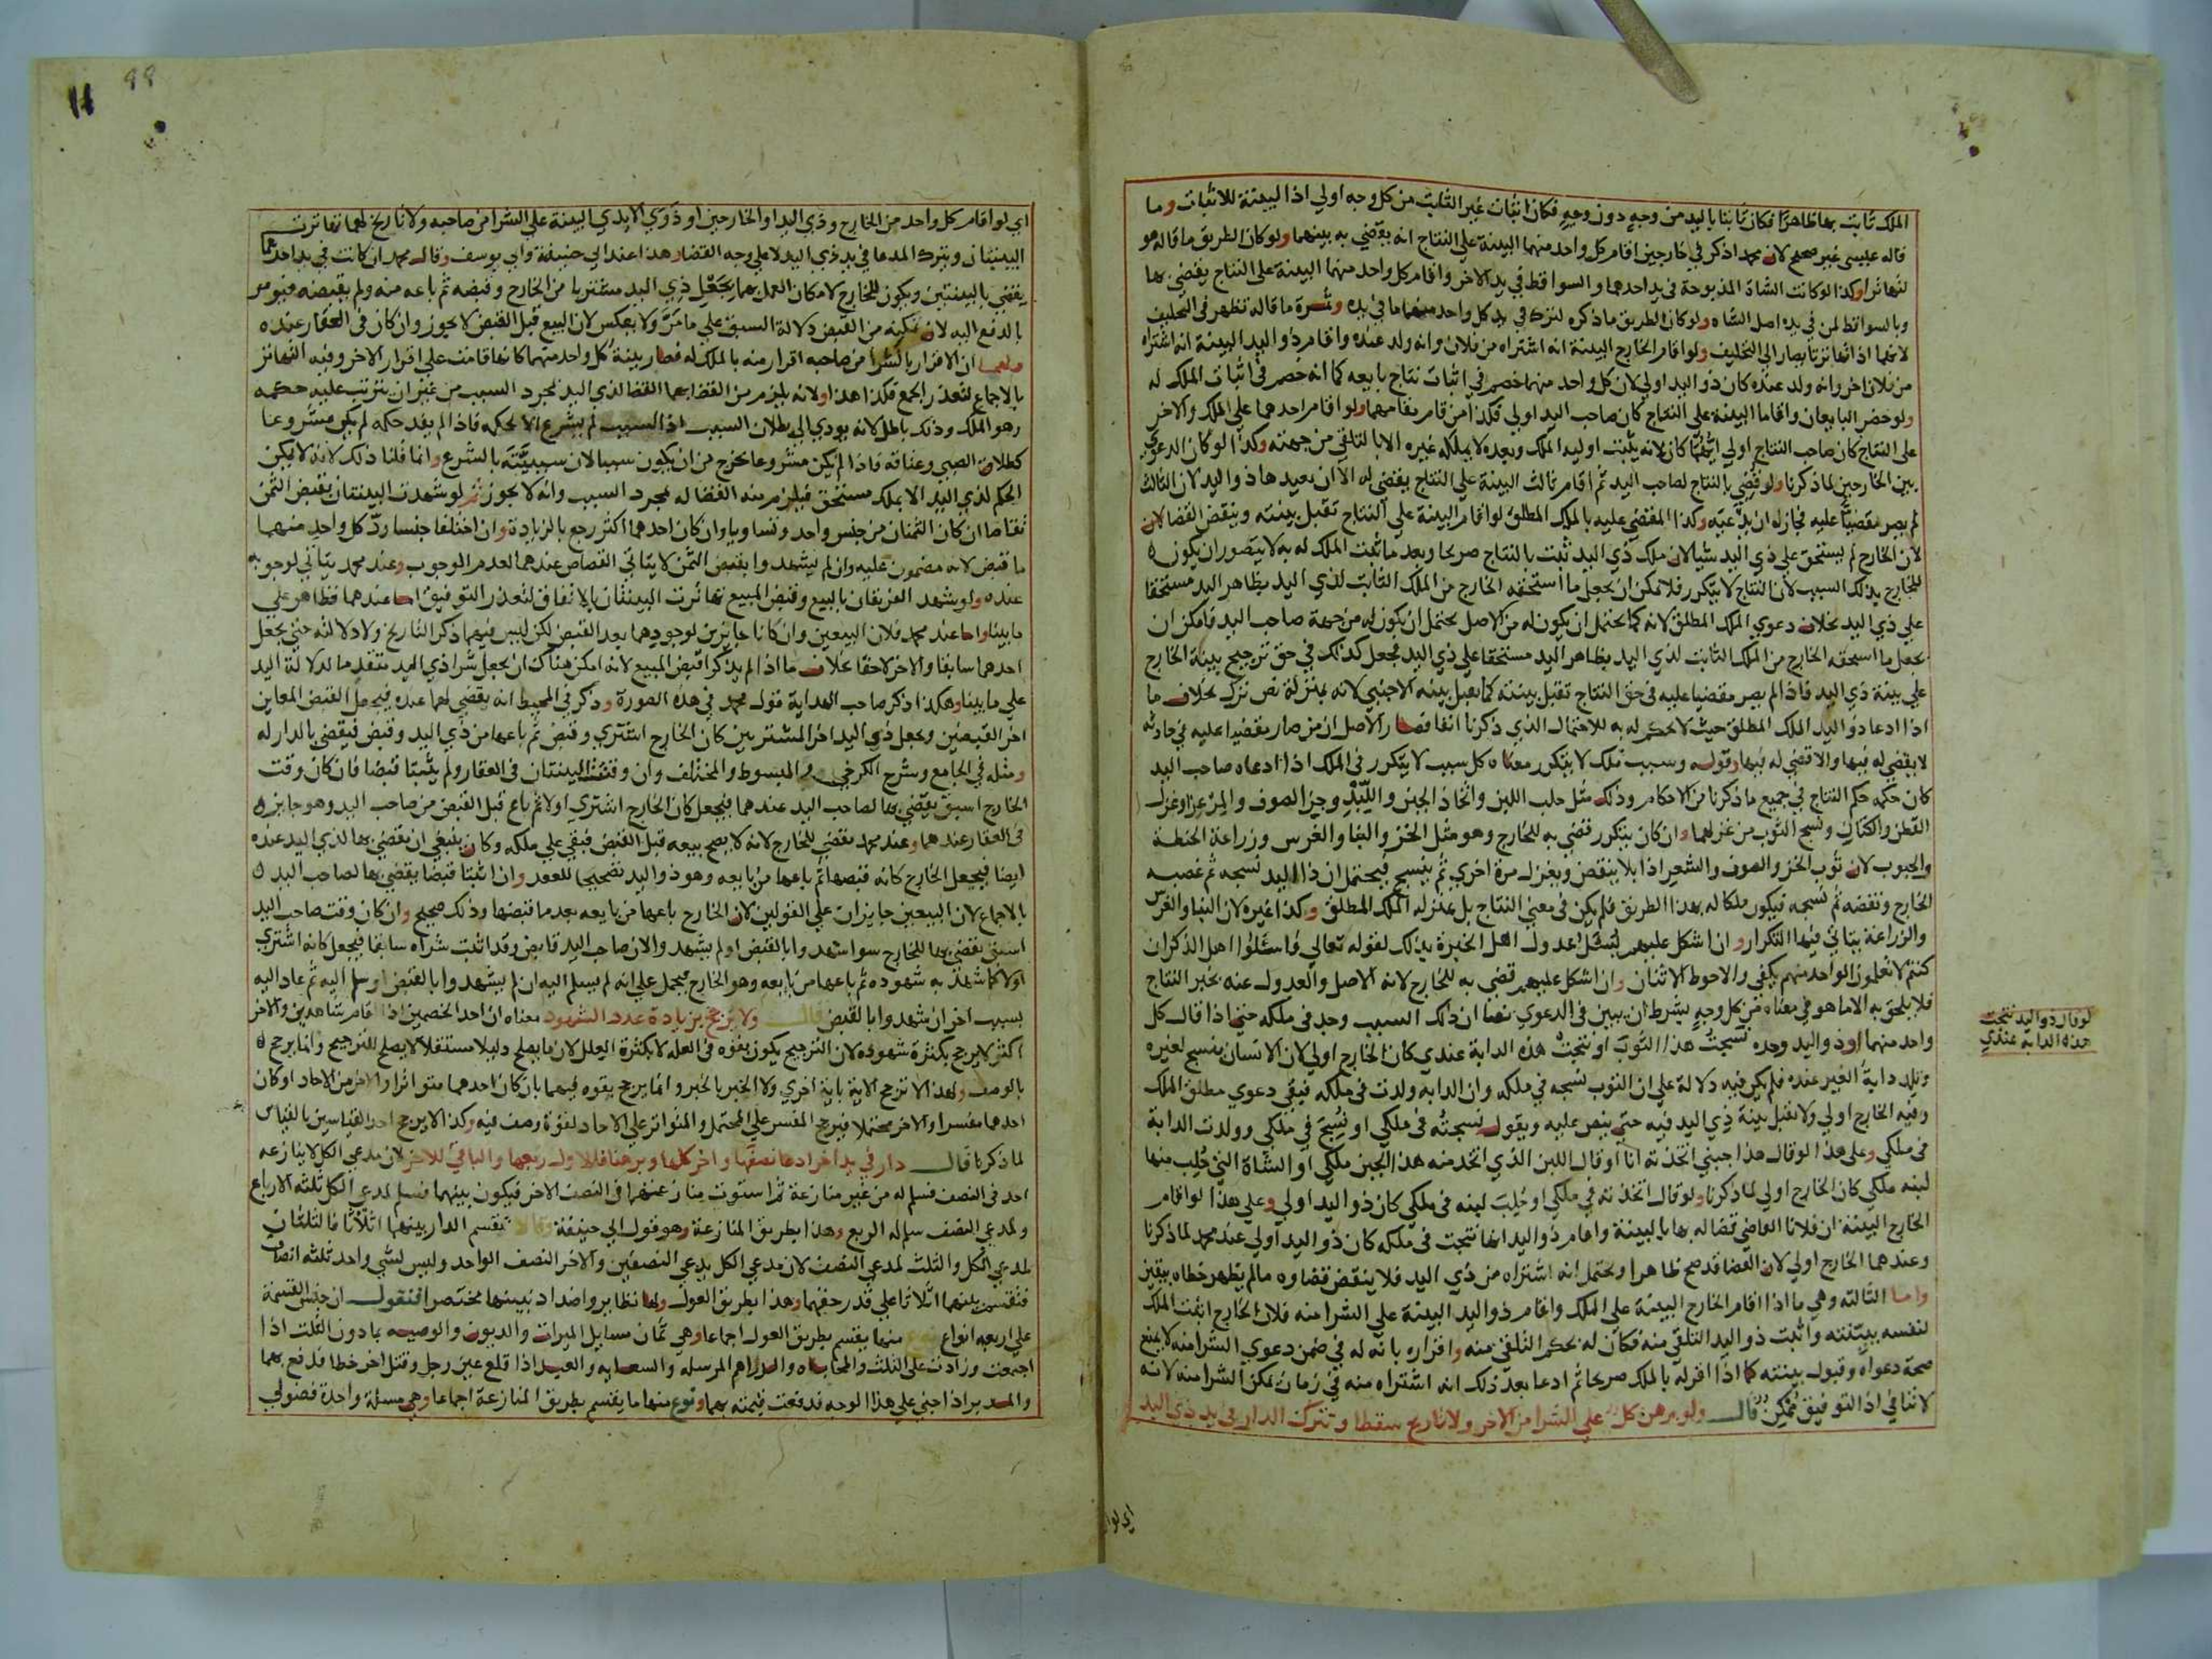 الملك ثابت بها ظاهرا فكان ثابتا باليد من وجه دون وجه فكان اثبات غير الثابت من كل وجه اولي اذ البينة للاثبات وما
قاله عيسى غير صحيح لان محمد اذكر في خارجين اقام كل واحد منهما البينة علي النتاج انه يقضي به بينهما ولو كان الطريق ما قاله هو
لتهاترا وكذا لو كانت الشاة المذبوحة في يد احدهما والسواقط في يد الاخر واقام كل واحد منهما البينة علي النتاج يقضي بها
وبالسواقط لمن في يده اصل الشاه ولو كان الطريق ما ذكره لترك في يد كل واحد منهما ما في يده وثمرة ما قاله تظهر في التحليف
لانهما اذا تهاترتا يصار الي التحليف ولو اقام الخارج البينة انه اشتراه من فلان وانه ولد عنده واقام ذو اليد البينة انه اشتراه
من فلان اخر وانه ولد عنده كان ذو اليد اولي لان كل واحد منهما خصم في اثبات نتاج بايعه كما انه خصم في اثبات الملك له
ولو حضر البايعان واقاما البينة علي النتاج كان صاحب اليد اولي فكذا من قام مقامهما ولو اقام احدهما علي الملك والاخر
علي النتاج كان صاحب النتاج اولي ايهما كان لانه يثبت اولية الملك وبعده لا يملكه غيره الا بالتلقي من جهته وكذا لو كان الدعوي
بين الخارجين لما ذكرنا ولو قضي بالنتاج لصاحب اليد ثم اقام ثالث البينة علي النتاج يقضي له الا ان يعيدها ذو اليد لان الثالث
لم يصر مقضيا عليه فجاز له ان يدعيه وكذا المقضي عليه بالملك المطلق لو اقام البينة علي النتاج تقبل بينته وينقض القضا لان
لان الخارج لم يستحق علي ذي اليد شيا لان ملك ذي اليد ثبت بالنتاج صريحا وبعد ما ثبت الملك له به لا يتصور ان يكون
للخارج بذلك السبب لان النتاج لا يتكرر فلا يمكن ان يجعل ما استحقه الخارج من الملك الثابت لذي اليد بظاهر اليد مستحقا
علي ذي اليد بخلاف دعوي الملك المطلق لانه كما يحتمل ان يكون له من الاصل يحتمل ان يكون له من جهة صاحب اليد فامكن ان
يجعل ما استحقه الخارج من الملك الثابت لذي اليد بظاهر اليد مستحقا علي ذي اليد فجعل كذلك في حق ترجيح بينة الخارج
علي بينة ذي اليد فاذا لم يصر مقضيا عليه في حق النتاج تقبل بينته كما تقبل بينة الاجنبي لانه بمنزلة نص ترك بخلاف ما
اذا ادعا ذو اليد الملك المطلق حيث لا يحكم له به للاحتمال الذي ذكرنا انفا فصار الاصل ان من صار مقضيا عليه في حادثه
لا يقضي له فيها والا قضي له فيها وقوله وسبب ملك لا يتكرر معناه كل سبب لا يتكرر في الملك اذا ادعاه صاحب اليد
كان حكمه حكم النتاج في جميع ما ذكرنا من الاحكام وذلك مثل حلب اللبن واتخاذ الجبن واللبد وجز الصوف والمرعزا وغزل
القطن والكتان ونسج الثوب من غزلهما وان كان يتكرر قضي به للخارج وهو مثل الخز والبنا والغرس وزراعة الحنطة
والحبوب لان ثوب الخز والصوف والشعر اذا بلا ينقض ويغزل مرة اخري ثم ينسج فيحتمل ان ذا اليد نسجه ثم غصبه
الخارج ونقضه ثم نسجه فيكون ملكا له بهذا الطريق فلم يكن في معني النتاج بل بمنزلة الملك المطلق وكذا غيره لان البنا والغرس
والزراعة يتاتي فيها التكرار وان اشكل عليهم يسئل عدول اهل الخبرة بذلك لقوله تعالي فاسئلوا اهل الذكر ان
كنتم لا تعلمون الواحد منهم يكفي والاحوط الاثنان وان اشكل عليهم قضي به للخارج لانه الاصل والعدول عنه بخبر النتاج
فلا يلحق به الا ما هو في معناه من كل وجه يشرط ان يبين في الدعوي نصا ان ذلك السبب وجد في ملكه حتي اذا قال كل
واحد منهما او ذو اليد وحده نسجت هذا الثوب او نتجت هذه الدابة عندي كان الخارج اولي لان الانسان ينسج لغيره
وتلد دابة الغير عنده فلم يكن فيه دلالة علي ان الثوب نسجه في ملكه وان الدابه ولدت في ملكه فبقي دعوي مطلق الملك
وفيه الخارج اولي ولا تقبل بينة ذي اليد فيه حتي ينص عليه ويقول نسجته في ملكي او نسج في ملكي وولدت الدابة
في ملكي وعلي هذا لو قال هذا جبني اتخذته انا او قال اللبن الذي اتخذ منه هذا الجبن ملكي او الشاة التي حلب منها
لبنه ملكي كان الخارج اولي لما ذكرنا ولو قال اتخذته في ملكي او حلب لبنه في ملكي كان ذو اليد اولي وعلي هذا لو اقام
الخارج البينة ان فلانا القاضي قضا له بها بالبينة واقام ذو اليد انها نتجت في ملكه كان ذو اليد اولي عند محمد لما ذكرنا
وعندهما الخارج اولي لان القضا قد صح ظاهرا ويحتمل انه اشتراه من ذي اليد فلا ينقض قضاوه ما لم يظهر خطاه بيقين
واما الثالثة وهي ما اذا اقام الخارج البينة علي الملك واقام ذو اليد البينة علي الشرا منه فلان الخارج اثبت الملك
لنفسه ببينته واثبت ذو اليد التلقي منه فكان له بحكم التلقي منه واقراره بانه له في ضمن دعوي الشرا منه لا يمنع
صحة دعواه وقبول بينته كما اذا اقر له بالملك صريحا ثم ادعا بعد ذلك انه اشتراه منه في زمان يمكن الشرا منه لانه
لا تنافي اذ التوفيق ممكن قال ولو برهن كل علي الشرا من الاخر ولا تاريخ سقطا وتترك الدار في يد ذي اليد
لو قال ذو اليد نتجت
هذه الدابة عندي
اي لو ا
اي لو اقام كل واحد من الخارج وذي اليد او الخارجين او ذوي الايدي البينة علي الشرا من صاحبه ولا تاريخ لهما تهاترت
البينتان ويترك المدعا في يد ذي اليد لا علي وجه القضا وهذا عند ابي حنيفة وابي يوسف وقال محمد ان كانت في يد احدهما
يقضي بالبينتين ويكون للخارج لامكان العمل بهما بجعل ذي اليد مشتريا من الخارج وقبضه ثم باعه منه ولم يقبضه فيومر
بالدفع اليه لان تمكينه من القبض دلالة السبق علي ما مر ولا يعكس لان البيع قبل القبض لا يجوز وان كان في العقار عنده
ولهما ان الاقرار بالشرا من صاحبه اقرار منه بالملك له فصار بينة كل واحد منهما كانها قامت علي اقرار الاخر وفيه التهاتر
بالاجماع لتعذر الجمع فكذا هذا ولانه يلزم من القضا بهما القضا لذي اليد بمجرد السبب من غير ان يترتب عليه حكمه
وهو الملك وذلك باطل لانه يودي الي بطلان السبب اذ السبب لم يشرع الا لحكمه فاذا لم يفد حكمه لم يكن مشروعا
كطلاق الصبي وعتاقه فاذا لم يكن مشروعا يخرج من ان يكون سببا لان سببيته بالشرع وانما قلنا ذلك لانه لا يمكن
الحكم لذي اليد الا بملك مستحق فيلزم منه القضا له بمجرد السبب وانه لا يجوز ثم لو شهدت البينتان بقبض الثمن
تقاصا ان كان الثمنان من جنس واحد وتساويا وان كان احدهما اكثر رجع بالزيادة وان اختلفا جنسا رد كل واحد منهما
ما قبض لانه مضمون عليه وان لم يشهدوا بقبض الثمن لا يتاتي القصاص عندهما لعدم الوجوب وعند محمد يتاتي لوجوبه
عنده ولو يشهد الفريقان بالبيع وقبض المبيع تهاترت البينتان بالاتفاق لتعذر التوفيق اما عندهما فظاهر علي
ما بينا واما عند محمد فلان البيعين وان كانا جايزين لوجودهما بعد القبض لكن ليس فيهما ذكر التاريخ ولا دلالته حتي يجعل
احدهما سابقا والاخر لاحقا بخلاف ما اذا لم يذكرا قبض المبيع لانه امكن هناك ان يجعل شرا ذي اليد متقدما لدلالة اليد
علي ما بينا وهكذا ذكر صاحب الهداية قول محمد في هذه الصورة وذكر في المحيط انه يقضي لهما عنده فيجعل القبض المعاين
اخر القبضين ويجعل ذي اليد اخر المشتريين كان الخارج اشتري وقبض ثم باعها من ذي اليد وقبض فيقضي بالدار له
ومثله في الجامع وشرح الكرخي والمبسوط والمختلف وان وقتت البينتان في العقار ولم يثبتا قبضا فان كان وقت
الخارج اسبق يقضي بها لصاحب اليد عندهما فيجعل كان الخارج اشتري اولا ثم باع قبل القبض من صاحب اليد وهو جايز
في العقار عندهما وعند محمد يقضي للخارج لانه لا يصح بيعه قبل القبض فبقي علي ملكه وكان ينبغي ان يقضي بها لذي اليد عنده
ايضا فيجعل الخارج كانه قبضها ثم باعها من بايعه وهو ذو اليد تصحيحا للعقد وان اثبتا قبضا يقضي بها لصاحب اليد
بالاجماع لان البيعين جايزان علي القولين لان الخارج باعها من بايعه بعد ما قبضها وذلك صحيح وان كان وقت صاحب اليد
اسبق يقضي بها للخارج سوا شهدوا بالقبض او لم يشهدوا لان صاحب اليد قابض وقد اثبت شراه سابقا فيجعل كانه اشتري
اولا كما شهد به شهوده ثم باعها من بايعه وهو الخارج فيحمل علي انه لم يسلم اليه ان لم يشهدوا بالقبض او سلم اليه ثم عاد اليه
بسبب اخر ان شهدوا بالقبض قال ولا ترجح بزيادة عدد الشهود معناه ان احد الخصمين اذا اقام شاهدين والاخر
اكثر لا يرجح بكثرة شهوده لان الترجيح يكون بقوه في العله لا بكثرة العلل لان ما يصلح دليلا مستقلا لا يصلح للترجيح وانما يرجح
بالوصف ولهذا لا ترجح الاية باية اخري ولا الخبر بالخبر وانما يرجح بقوه فيهما بان كان احدهما متواترا والاخر من الاحاد او كان
احدهما مفسرا والاخر محتملا فيرجح المفسر علي المحتمل والمتواتر علي الاحاد لقوة وصف فيه وكذا لا يرجح احد القياسين بالقياس
لما ذكرنا قال دار في يد اخر ادعا نصفها واخر كلها وبرهنا فللاول ربعها والباقي للاخر لان مدعي الكل لا ينازعه
احد في النصف فسلم له من غير منازعة ثم استوت منازعتهما في النصف الاخر فيكون بينهما فسلم لمدعي الكل ثلثة الارباع
ولمدعي النصف سلم له الربع وهذا بطريق المنازعة وهو قول ابي حنيفة وقالا تقسم الدار بينهما اثلاثا فالثلثان
لمدعي الكل والثلث لمدعي النصف لان مدعي الكل يدعي النصفين والاخر النصف الواحد وليس لشي واحد ثلثة انصاف
فتقسم بينهما اثلاثا علي قدر حقهما وهذا بطريق العول ولها نظاير واضداد نبينها مختصرا فنقول ان جنس القسمة
علي اربعه انواع منها يقسم بطريق العول اجماعا وهي ثمان مسايل الميراث والديون والوصيه بما دون الثلث اذا
اجتمعت وزادت علي الثلث والمحاباه والدراهم المرسله والسعايه والعبد اذا قلع عين رجل وقتل اخر خطا فدفع بهما
والمدبر اذا جني علي هذا الوجه فدفعت قيمته بهما ونوع منها ما يقسم بطريق المنازعة اجماعا وهي مسئلة واحدة فضولي